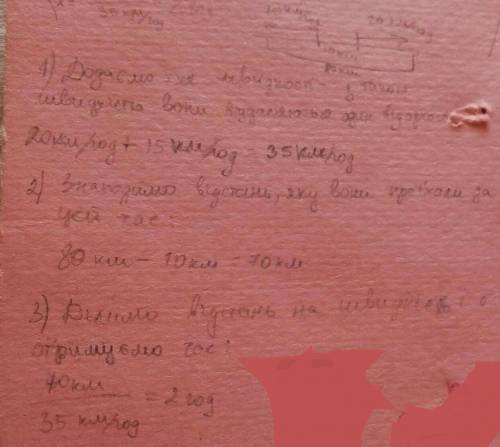 35 км/год 2 год
15 км/год 20 км/год
10 км
80 км
1) Додаємо їхні швидкості - з такою
швидкістю вони віддаляються один від одного
20 км/год + 15 км/год = 35 км/год
2) Знаходимо відстань, яку вони проїхали за
цей час:
80 км - 10 км = 70 км
3) Ділимо відстань на швидкість і
отримуємо час:
70 км
= 2 год
35 км/год